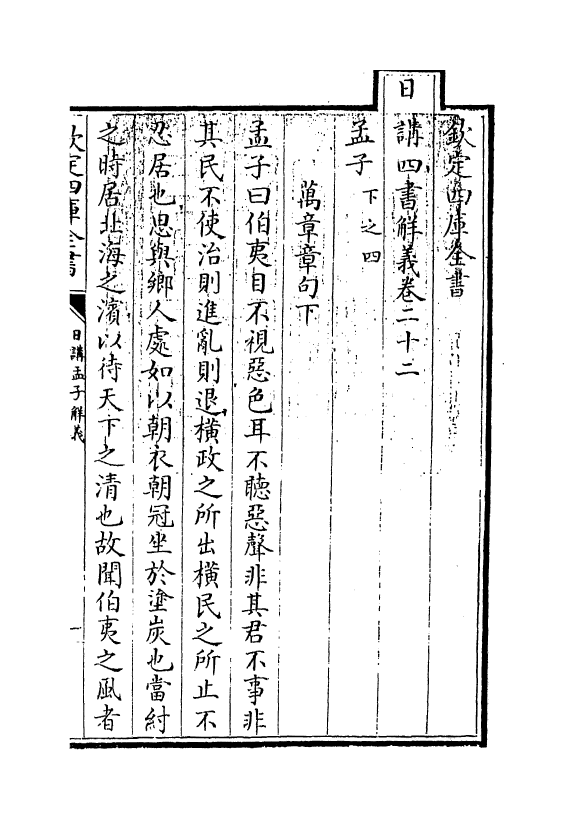 欽定四庫全書
日講四書解義卷二十二
孟子下之四
萬章章句下
孟子曰伯夷目不視惡色耳不聽惡聲非其君不事非
其民不使治則進亂則退橫政之所出橫民之所止不
忍居也思與鄉人處如以朝衣朝冠坐於塗炭也當紂
之時居北海之濱以待天下之清也故聞伯夷之風者
欽定四庫全書
日講孟子解義
一